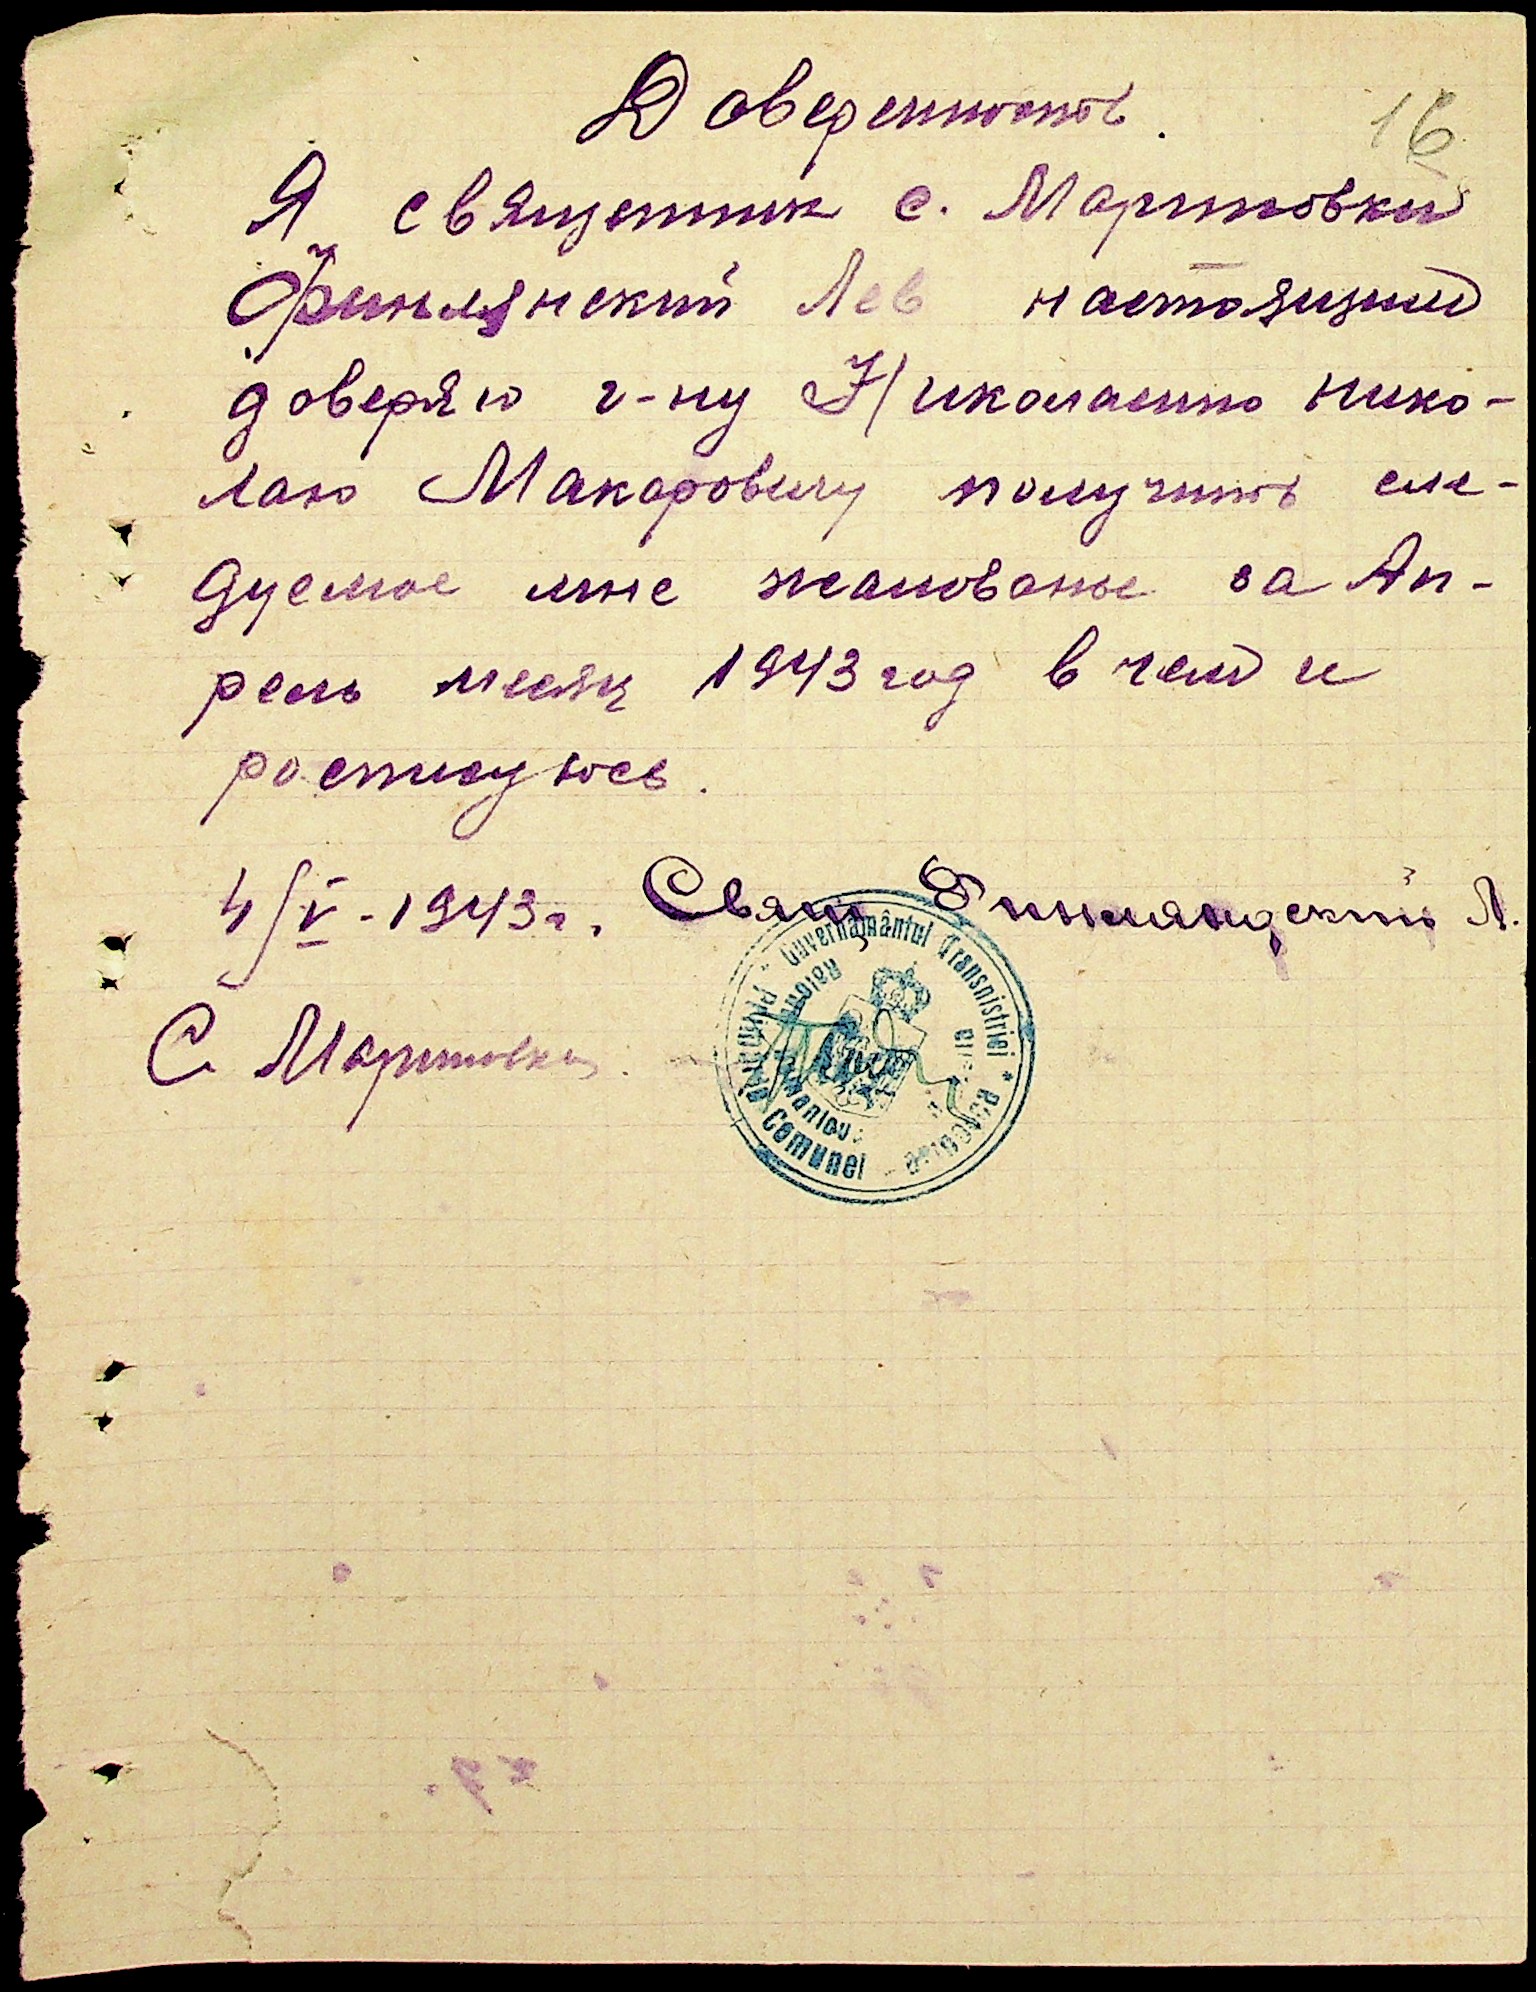 Доверенность.
16
Я священник с. Мартовки
Финлянский Лев настоящим
доверяю г-ну Николаенко Нико-
лаю Макаровичу получить сле-
дуемое мне жалованье за Ап-
рель месяц 1943 год в чем и
росписуюсь.
4/V-1943г. Свящ Финляндский Л.
С. Мартовка
Guvernământul Transnistriei * 
Primăria Comunei
Raionul